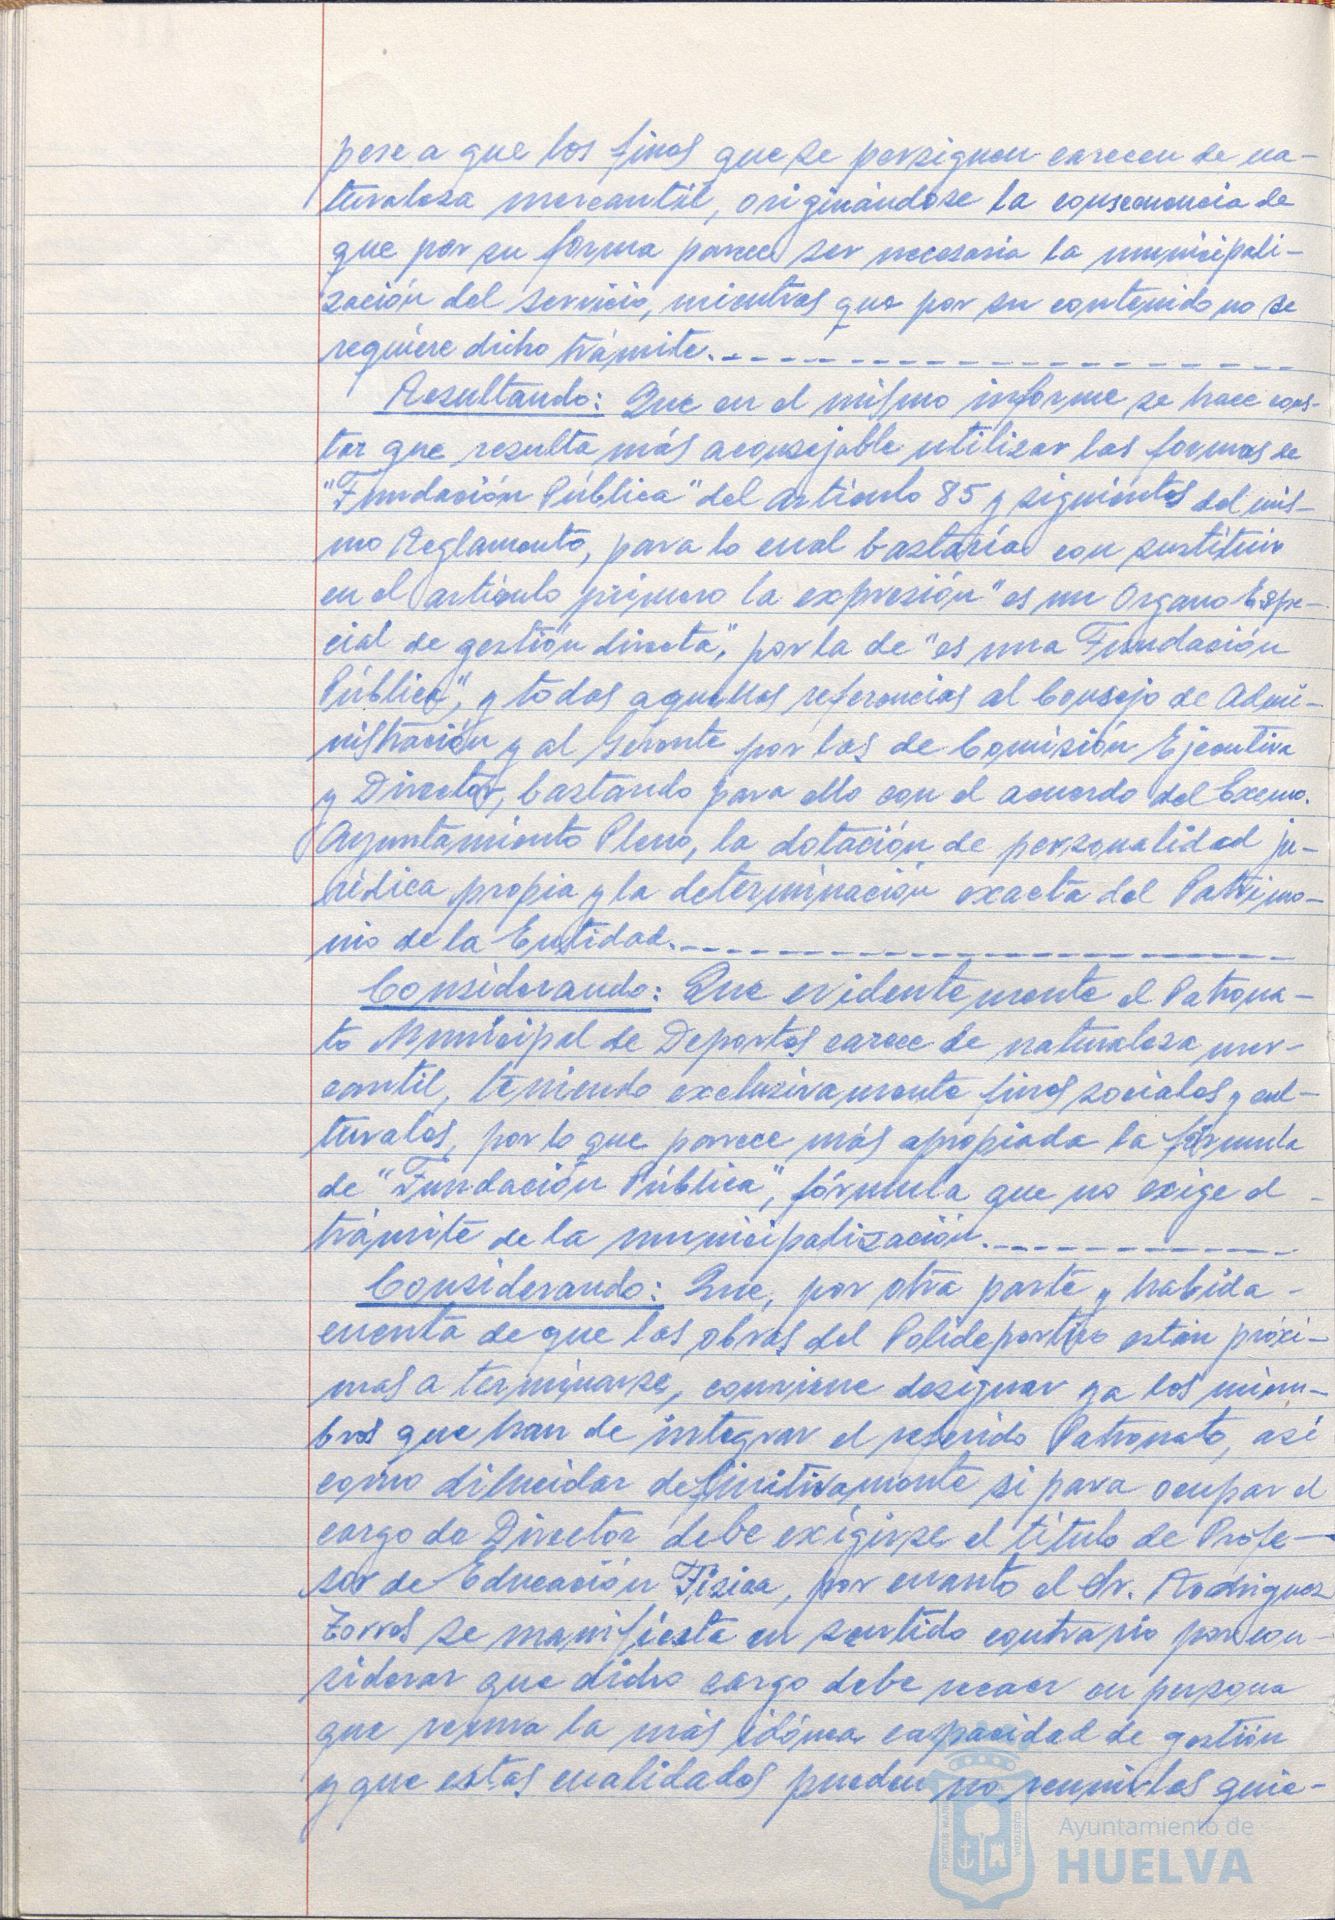 pese a que los fines que se persiguen carecen de na-
turaleza mercantil, originándose la consecuencia de
que por su forma parece ser necesaria la municipali-
zación del servicio, mientras que por su contenido no se
requiere dicho trámite.
Resultando: Que en el mismo informe se hace cons-
tar que resulta más aconsejable utilizar las formas de
"Fundación Pública" del artículo 85 y siguientes del mis-
mo Reglamento, para lo cual bastaría con sustituir
en el artículo primero la expresión "es un Organo Espe-
cial de gestión directa", por la de "es una Fundación
Pública", y todas aquellas referencias al Consejo de Admi-
nistración y al Gerente por las de Comisión Ejecutiva
y Director, bastando para ello con el acuerdo del Excmo.
Ayuntamiento Pleno, la dotación de personalidad ju-
rídica propia y la determinación exacta del Patrimo-
nio de la Entidad.
Considerando: Que evidentemente el Patrona-
to Municipal de Deportes carece de naturaleza mer-
cantil, teniendo exclusivamente fines sociales y cul-
turales, por lo que parece más apropiada la fórmula
de "Fundación Pública", fórmula que no exige el
trámite de la municipalización.
Considerando: Que, por otra parte y habida
cuenta de que las obras del Polideportivo están próxi-
mas a terminarse, conviene designar ya los miem-
bros que han de integrar el referido Patronato, así
como dilucidar definitivamente si para ocupar el
cargo de Director debe exigirse el título de Profe-
sor de Educación Física, por cuanto el Sr. Rodriguez
Zorros se manifiesta en sentido contrario por con-
siderar que dicho cargo debe recaer en persona
que reuna la más idónea capacidad de gestión
y que estas cualidades pueden no reunirlas quie-
PORTUS MARIS
CUSTODIA
Ayuntamiento de
HUELVA